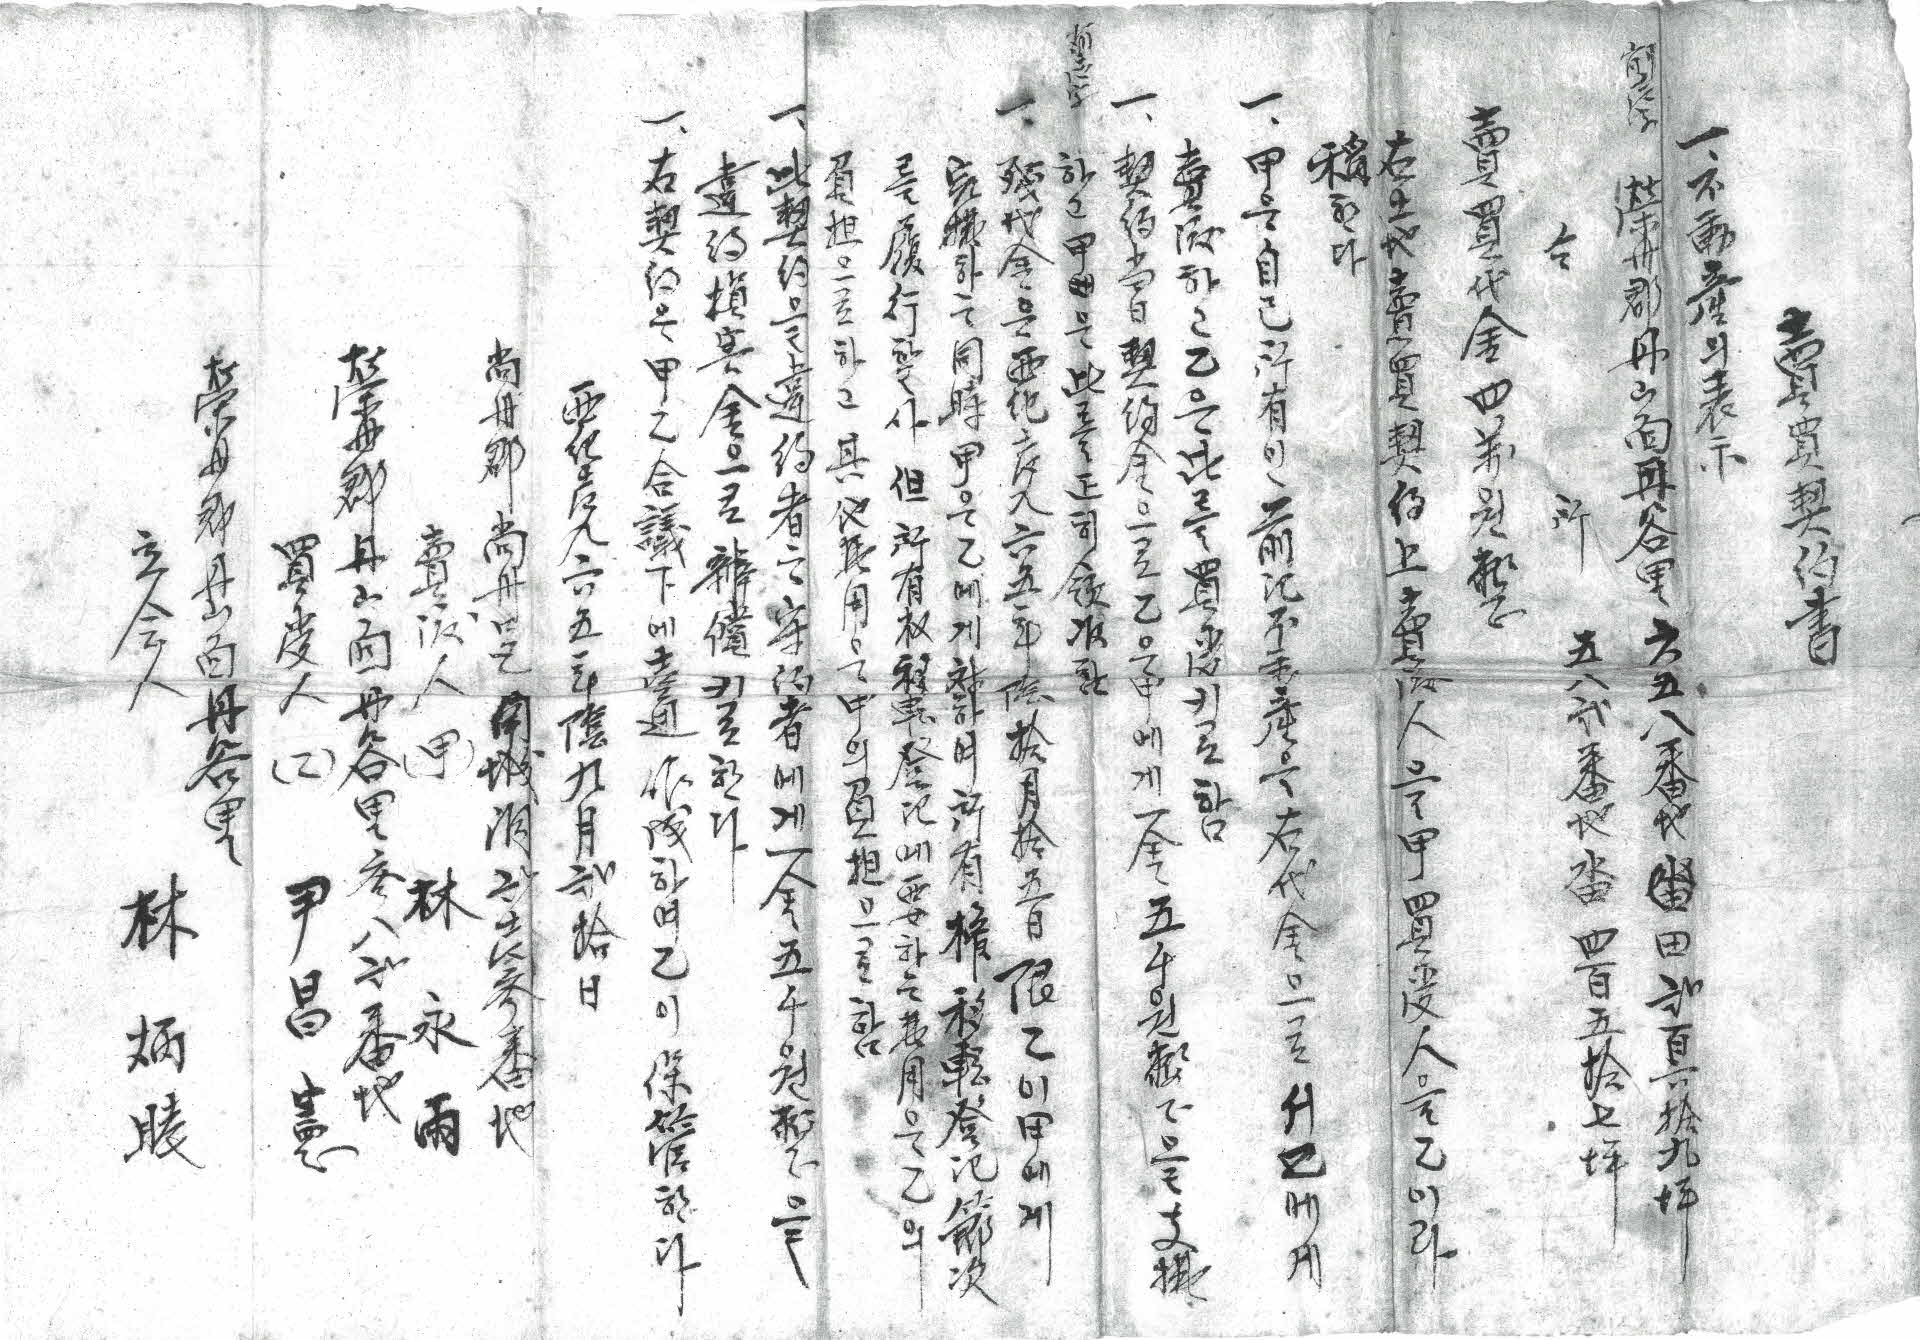 賣買契約書
一、不動産의表示
榮州郡丹山面丹谷里 六五八番地 田 弐百六拾九坪
仝 所 五八弐番地 畓 四百五拾七坪
賣買代金四萬원整
右土地賣買契約上賣渡人을甲買受人을乙이라
稱한다
一、甲은自己所有인前記不動産을右代金으로 乙에게
賣渡하고乙은此를買受키로함
一、契約當日契約金으로乙은甲에게一金五千원整을支拂
하고甲은此를正히領收함
一、殘代金은西紀一九六五年陰拾月拾五日限乙이甲에게
完拂하는同時甲은乙에게 所有權移轉登記節次
를履行할사 但所有权移転登記에要하는費用은乙의
負担으로하고其他費用은甲의負担으로함
一、此契約을違約者는守約者에게一金五千원整을
違約損害金으로辨償키로한다
一、右契約은甲乙合議下에壹通作成하여乙이保管한다
西紀一九六五年陰九月弐拾日
尚州郡尚州邑 番地
賣渡人(甲) 林永雨
榮州郡丹山面丹谷里 八弐番地
買受人(乙) 尹昌憲
榮州郡丹山面丹谷里
立会人 林炳